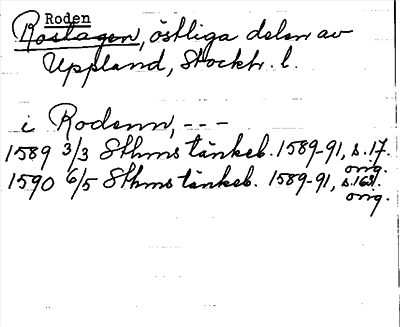 Roden
Roslagen, östliga delen av
Uppland, Stockh. l.
i Rodenn, ---
1589 3/3 Sthms tänkeb. 1589-91, s. 17.
orig.
1590 6/5 Sthms tänkeb. 1589-91, s. 163.
orig.